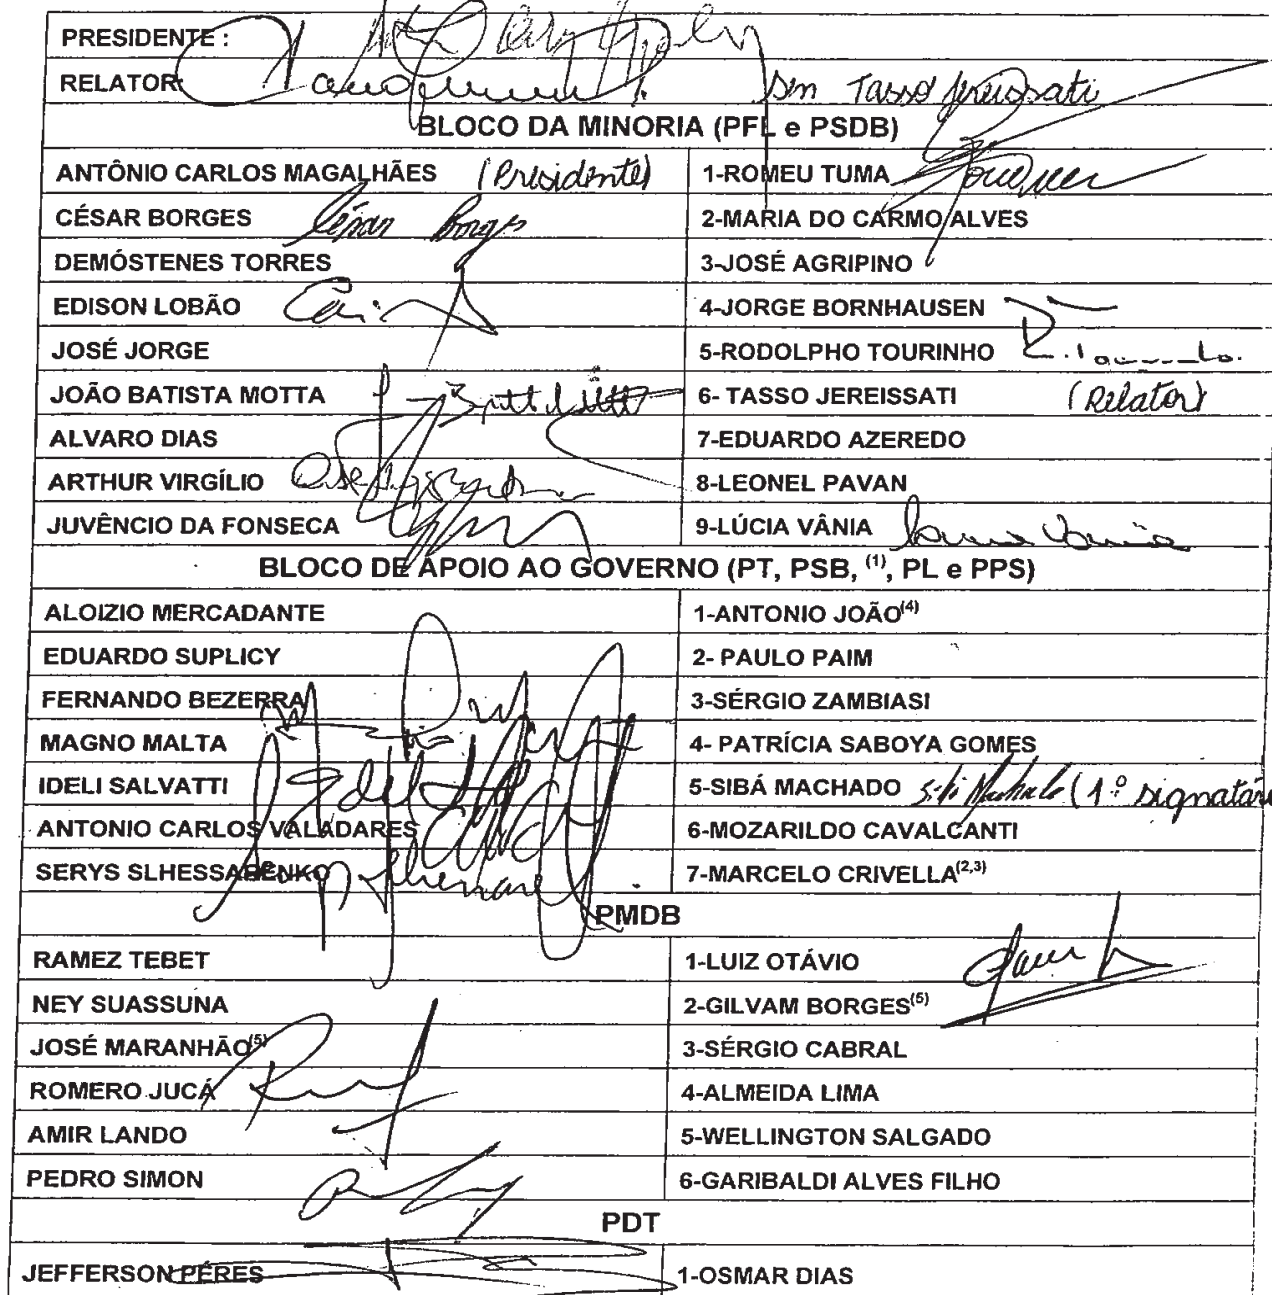 PRESIDENTE :
RELATOR: Sen Tasso Jereissati
BLOCO DA MINORIA (PFL e PSDB)
ANTÔNIO CARLOS MAGALHÃES (Presidente) 1-ROMEU TUMA
CÉSAR BORGES César Borges 2-MARIA DO CARMO ALVES
DEMÓSTENES TORRES 3-JOSÉ AGRIPINO
EDISON LOBÃO 4-JORGE BORNHAUSEN
JOSÉ JORGE 5-RODOLPHO TOURINHO
JOÃO BATISTA MOTTA 6- TASSO JEREISSATI (Relator)
ALVARO DIAS 7-EDUARDO AZEREDO
ARTHUR VIRGÍLIO 8-LEONEL PAVAN
JUVÊNCIO DA FONSECA 9-LÚCIA VÂNIA Lúcia Vânia
BLOCO DE APOIO AO GOVERNO (PT, PSB, (1), PL e PPS)
ALOIZIO MERCADANTE 1-ANTONIO JOÃO(4)
EDUARDO SUPLICY 2- PAULO PAIM
FERNANDO BEZERRA 3-SÉRGIO ZAMBIASI
MAGNO MALTA 4- PATRÍCIA SABOYA GOMES
IDELI SALVATTI 5-SIBÁ MACHADO Sibá Machado (1º signatári
ANTONIO CARLOS VALADARES 6-MOZARILDO CAVALCANTI
SERYS SLHESSARENKO 7-MARCELO CRIVELLA(2,3)
PMDB
RAMEZ TEBET 1-LUIZ OTÁVIO
NEY SUASSUNA 2-GILVAM BORGES(5)
JOSÉ MARANHÃO(5) 3-SÉRGIO CABRAL
ROMERO JUCÁ 4-ALMEIDA LIMA
AMIR LANDO 5-WELLINGTON SALGADO
PEDRO SIMON 6-GARIBALDI ALVES FILHO
PDT
JEFFERSON PÉRES 1-OSMAR DIAS